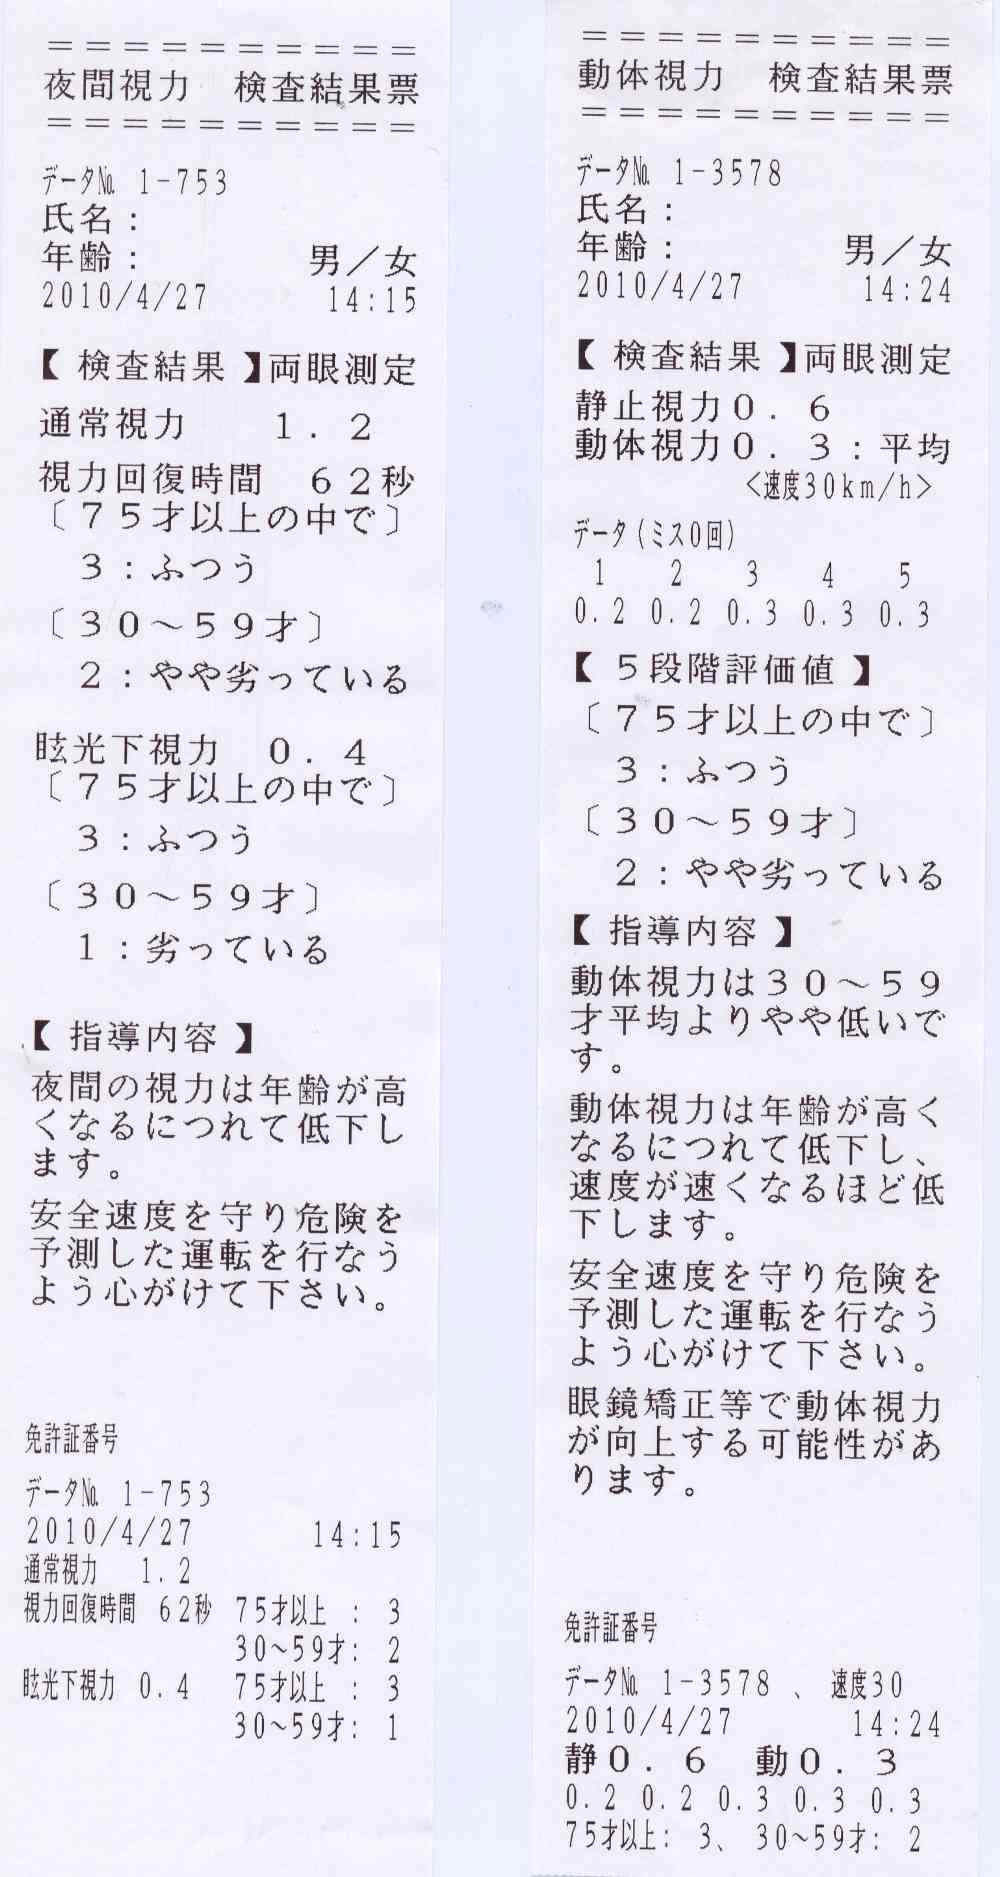 ＝＝＝＝＝＝＝＝＝＝
夜間視力　検査結果票
＝＝＝＝＝＝＝＝＝＝
データ№ 1-753
氏名：
年齢：　男／女
2010/4/27　14:15
【 検査結果 】両眼測定
通常視力　１．２
視力回復時間　６２秒
〔７５才以上の中で〕
３：ふつう
〔３０～５９才〕
２：やや劣っている
眩光下視力　０．４
〔７５才以上の中で〕
３：ふつう
〔３０～５９才〕
１：劣っている
【 指導内容 】
夜間の視力は年齢が高
くなるにつれて低下し
ます。
安全速度を守り危険を
予測した運転を行なう
よう心がけて下さい。
免許証番号
データ№ 1-753
2010/4/27　14:15
通常視力　1.2
視力回復時間 62秒 75才以上 : 3
30~59才: 2
眩光下視力 0.4 75才以上 : 3
30~59才: 1
＝＝＝＝＝＝＝＝＝＝
動体視力　検査結果票
＝＝＝＝＝＝＝＝＝＝
データ№ 1-3578
氏名：
年齢：　男／女
2010/4/27　14:24
【 検査結果 】両眼測定
静止視力０．６
動体視力０．３：平均
<速度30km/h>
データ(ミス0回)
1 2 3 4 5
0.2 0.2 0.3 0.3 0.3
【 ５段階評価値 】
〔７５才以上の中で〕
３：ふつう
〔３０～５９才〕
２：やや劣っている
【 指導内容 】
動体視力は３０～５９
才平均よりやや低いで
す。
動体視力は年齢が高く
なるにつれて低下し、
速度が速くなるほど低
下します。
安全速度を守り危険を
予測した運転を行なう
よう心がけて下さい。
眼鏡矯正等で動体視力
が向上する可能性があ
ります。
免許証番号
データ№ 1-3578 、 速度30
2010/4/27　14:24
静０．６　動０．３
0.2 0.2 0.3 0.3 0.3
75才以上: 3、 30~59才: 2